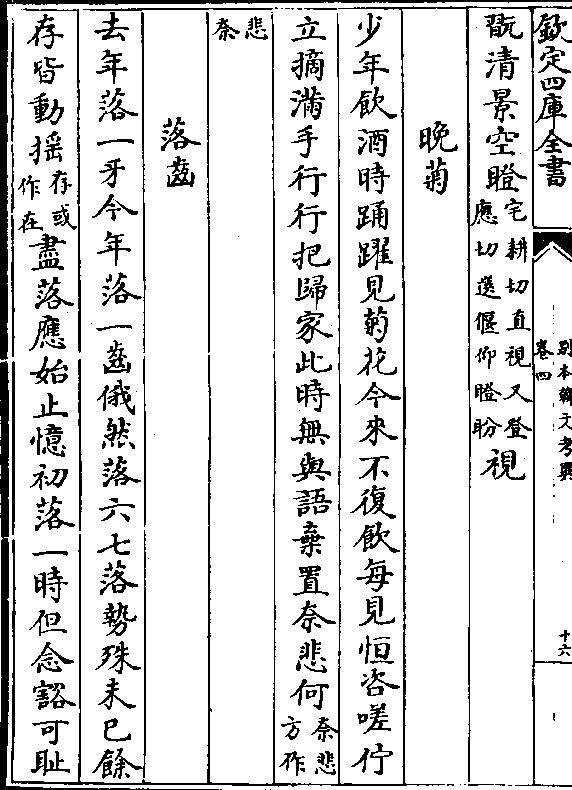 欽定四庫全書
别本韓文考異
卷四
十六
翫清景空瞪宅耕切直視又登應切選偃仰瞪盼視
晚菊
少年飲酒時踊躍見菊花今來不復飲每見恒咨嗟佇
立摘滿手行行把歸家此時無與語棄置奈悲何奈悲方作
悲奈
落齒
去年落一牙今年落一齒俄然落六七落勢殊未已餘
存皆動揺存或作在盡落應始止憶初落一時但念豁可耻